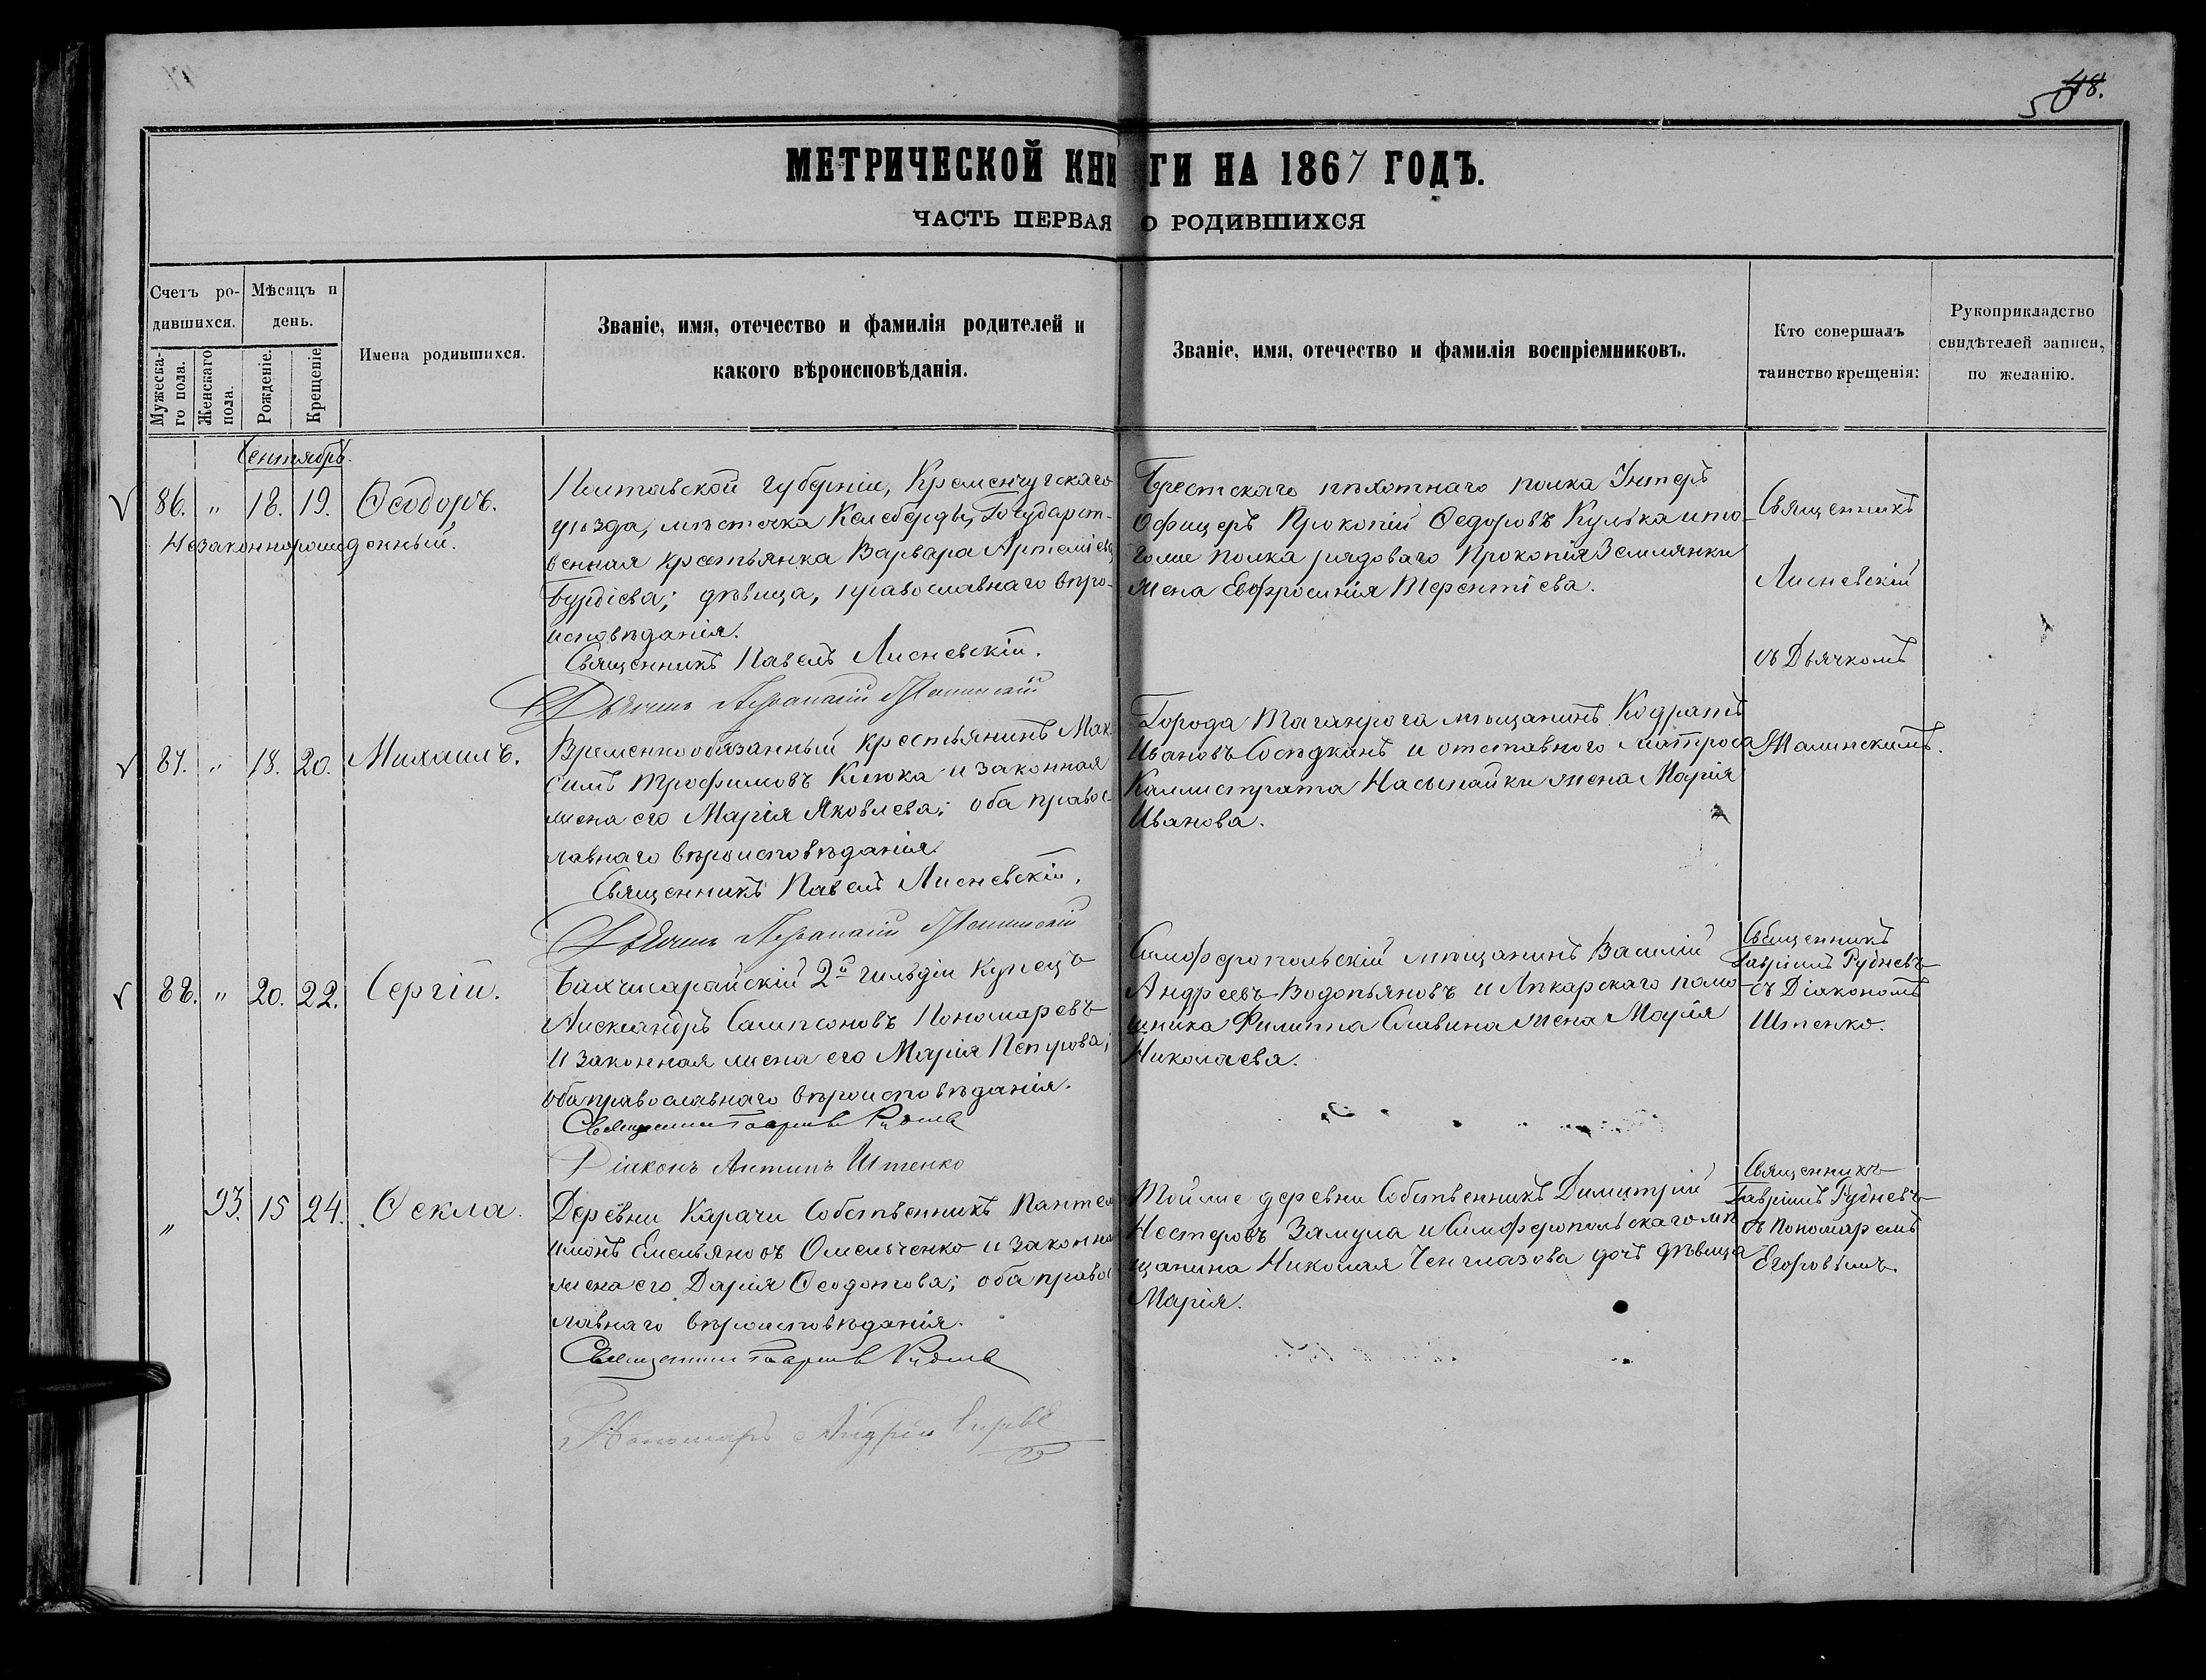 48.
50
МЕТРИЧЕСКОЙ КНИГИ НА 1867 ГОДЪ.
ЧАСТЬ ПЕРВАЯ О РОДИВШИХСЯ
Счетъ ро-
дившихся.
Мужеска-
го пола.
Женскаго
пола.
Мѣсяцъ и
день.
Рожденіе.
Крещеніе
Имена родившихся.
Званіе, имя, отечество и фамилія родителей и
какого вѣроисповѣданія.
Званіе, имя, отечество и фамилія воспріемниковъ.
Кто совершалъ
таинство крещенія:
Рукоприкладство
свидѣтелей записи,
по желанію.
Сентябрь.
86. " 18. 19. Ѳеодоръ.
Незаконнорожденный.
Полтавской губерніи, Кременчугскаго
уѣзда, мѣстечка Келеберды, Государст-
венная крестьянка Варвара Артеміева
Бурдіева; дѣвица, православнаго вѣро-
исповѣданія.
Священникъ Павелъ Лисневскій.
Дьячекъ Аѳанасій
Брестскаго пѣхотнаго полка Унтеръ
Офицеръ Прокопій Ѳедоровъ Кулька и то-
гоже полка рядоваго Прокопія Землянки
жена Евфросинія Терентіева.
Священникъ
Лисневскій
съ Дьячкомъ
87. " 18. 20. Михаилъ.
Временнообязанный крестьянинъ Мак-
симъ Трофимовъ Клюка и законная
жена его Марія Яковлева; оба правос-
лавнаго вѣроисповѣданія.
Священникъ Павелъ Лисневскій.
Дьячекъ Аѳанасій
Города Таганрога мѣщанинъ Кодратъ
Ивановъ Сосѣдкинъ и отставного матроса
Каллистрата Насыпайки жена Марія
Иванова.
88. " 20. 22. Сергій.
Бахчисарайскій 2й гильдіи купецъ
Александръ Сампсоновъ Пономаревъ
и законная жена его Марія Петрова;
оба православнаго вѣроисповѣданія.
Священникъ Гавріилъ Рудневъ
Діаконъ Антипъ Штенко
Симферопольскій мѣщанинъ Василій
Андреевъ Водопьяновъ и Апкарскаго помо-
щника Филиппа Славина жена Марія
Николаева.
Священникъ
Гавріилъ Рудневъ
съ Діакономъ
Штенко.
" 93. 15 24. Ѳекла.
Деревни Карачи Собственникъ Пантеле-
имонъ Емельяновъ Омельченко и законная
жена его Дарія Ѳеодотова; оба правос-
лавнаго вѣроисповѣданія.
Священникъ Гавріилъ Рудневъ
Пономарь Андрей
Тойже деревни Собственникъ Димитрій
Нестеровъ Замула и Симферопольскаго мѣ-
щанина Николая дочь дѣвица
Марія.
Священникъ
Гавріилъ Рудневъ
съ Пономаремъ
Егоровымъ